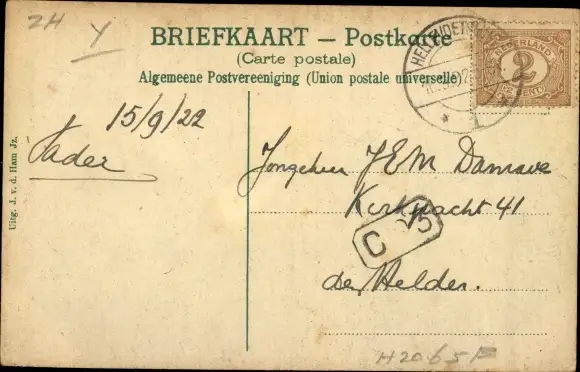 2H
Y
BRIEFKAART — Postkarte
(Carte postale)
Algemeene Postvereeniging (Union postale universelle)
NEDERLAND
2
CENT
15/9/22
Vader
Jongeheer J E M Damave
Kerkgracht 41
C 5
den Helder.
Uitg. J. v. d. Ham Jz.
H2065F